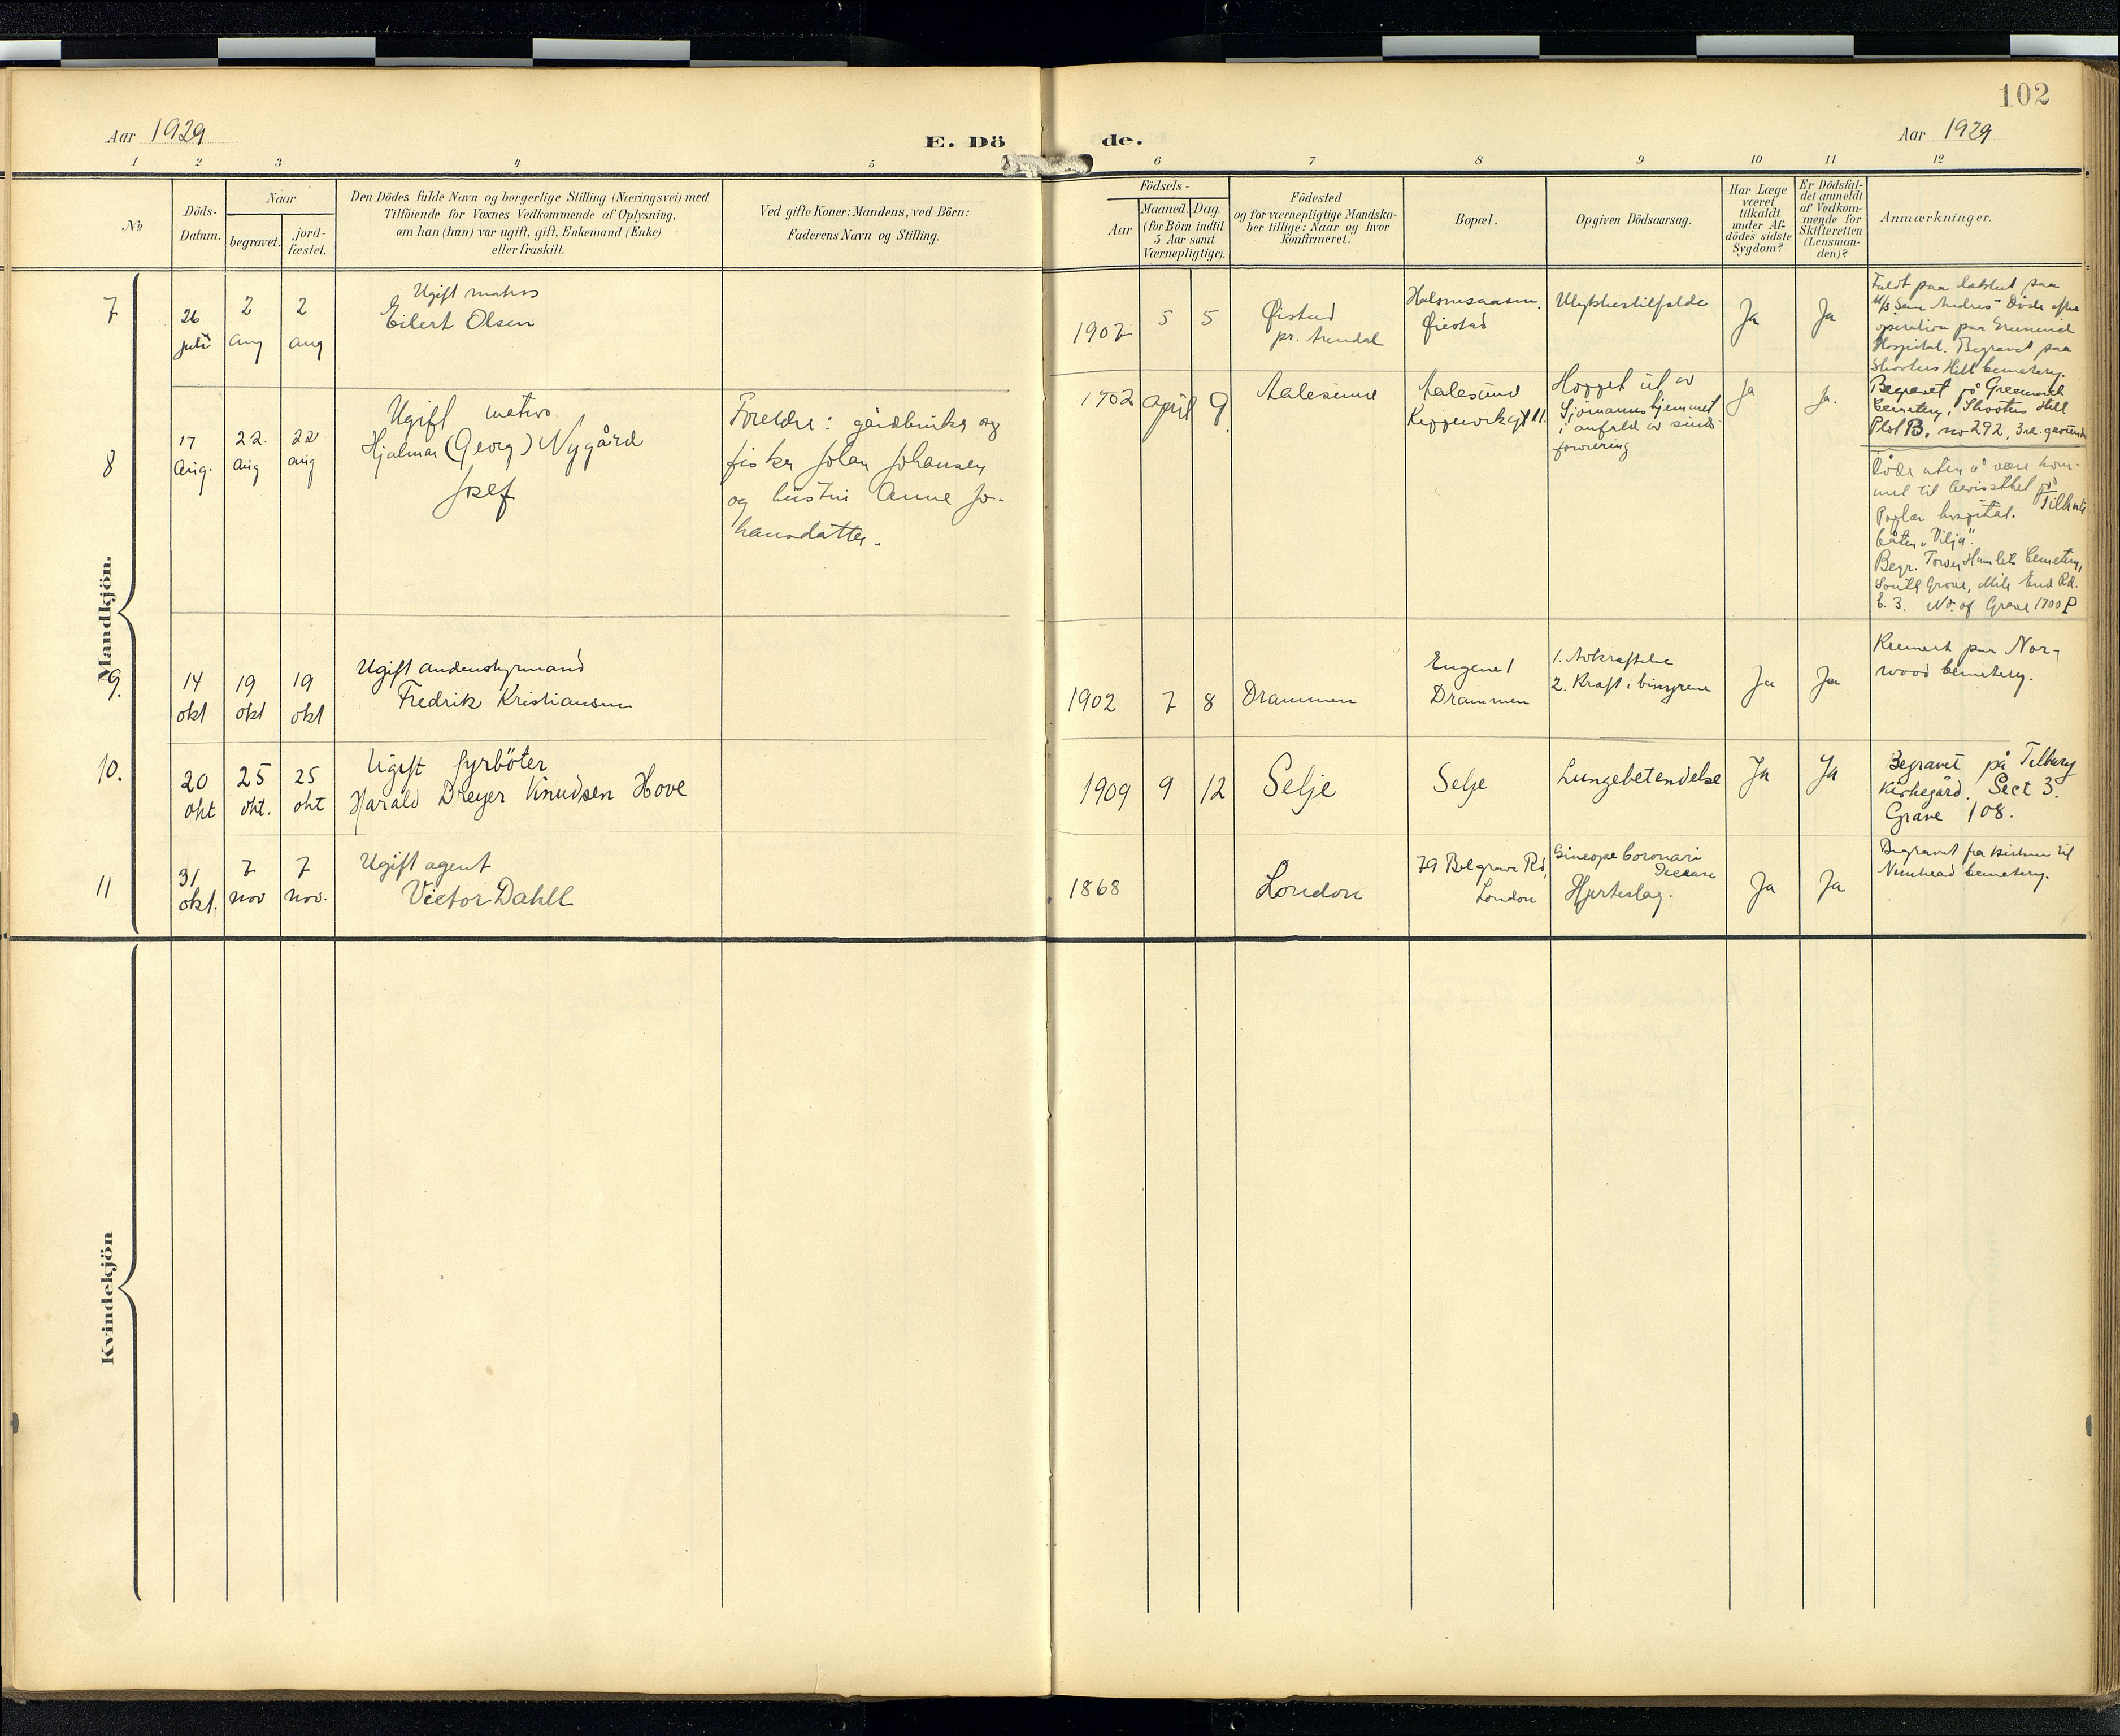 102
Aar 1929
E. Dö
de.
Aar 1929
1 2 3 4 5
6 7 8 9 10 11 12
No
Döds-
Datum.
Naar
begravet.
jord-
fæstet.
Den Dödes fulde Navn og borgerlige Stilling (Næringsvei) med
Tilföiende for Voxnes Vedkommende af Oplysning,
om han (hun) var ugift, gift, Enkemand (Enke)
eller fraskilt.
Ved gifte Koner: Mandens, ved Börn:
Faderens Navn og Stilling.
Födsels-
Aar
Maaned. Dag.
(for Börn indtil
5 Aar samt
Værnepligtige).
Födested
og for værnepligtige Mandska-
ber tillige: Naar og hvor
konfirmeret.
Bopæl.
Opgiven Dödsaarsag.
Har Læge
været
tilkaldt
under Af-
dödes sidste
Sygdom?
Er Dödsfal-
det anmeldt
af Vedkom-
mende for
Skifteretten
(Lensman-
den)?
Anmærkninger.
Mandkjön.
7
26
juli
2
aug
2
aug
Ugift matros
Eilert Olsen
1902
5
5
Øistad
pr. Arendal
Øiestad
Ulykkestilfælde
Ja
Ja
Faldt paa
Døde efter
operation paa Greenwich
Hospital. Begravet paa
Shooters Hill Cemetery.
Begravet på Greenwich
Cemetery, Shooters Hill
Plot B, no 292,
8
17
Aug.
22.
Aug
22
aug
Ugift matros
Hjalmar (Georg) Nygård
Josef
Foreldre: gårdbruker og
fisker Johan Johansen
og hustru Anne Jo-
hansdatter.
1902
April
9
Aalesund
Aalesund
11.
Hoppet ut av
Sjömannshjemmet
i anfald av sinds-
forvirring
Ja
Ja.
Döde uten å være kom-
met til bevissthet på
Poplar hospital. Tilhørte
båten "Vilja".
Begr. Tower Hamlets Cemetery,
South Grove, Mile End Rd.
E. 3. No. of Grave 1700 P
9.
14
okt
19
okt
19
okt
Ugift andenstyrmand
Fredrik Kristiansen
1902
7
8
Drammen
Engene 1
Drammen
1. Avkræftelse
2. Kræft i binyrene
Ja
Ja
Kremert paa Nor-
wood Cemetery.
10.
20
okt
25
okt.
25
okt
Ugift fyrböter
Harald Dreyer Knudsen Hove
1909
9
12
Selje
Selje
Lungebetendelse
Ja
Ja
Begravet på Tilbury
Kirkegård. Sect 3.
Grave 108.
11
31
okt.
7
nov
7
nov.
Ugift agent
Victor Dahll
1868
London
79 Belgrave Rd,
London
Hjerteslag.
Ja
Ja
Begravet fra kirken til
Nunhead Cemetery.
Kvindekjön